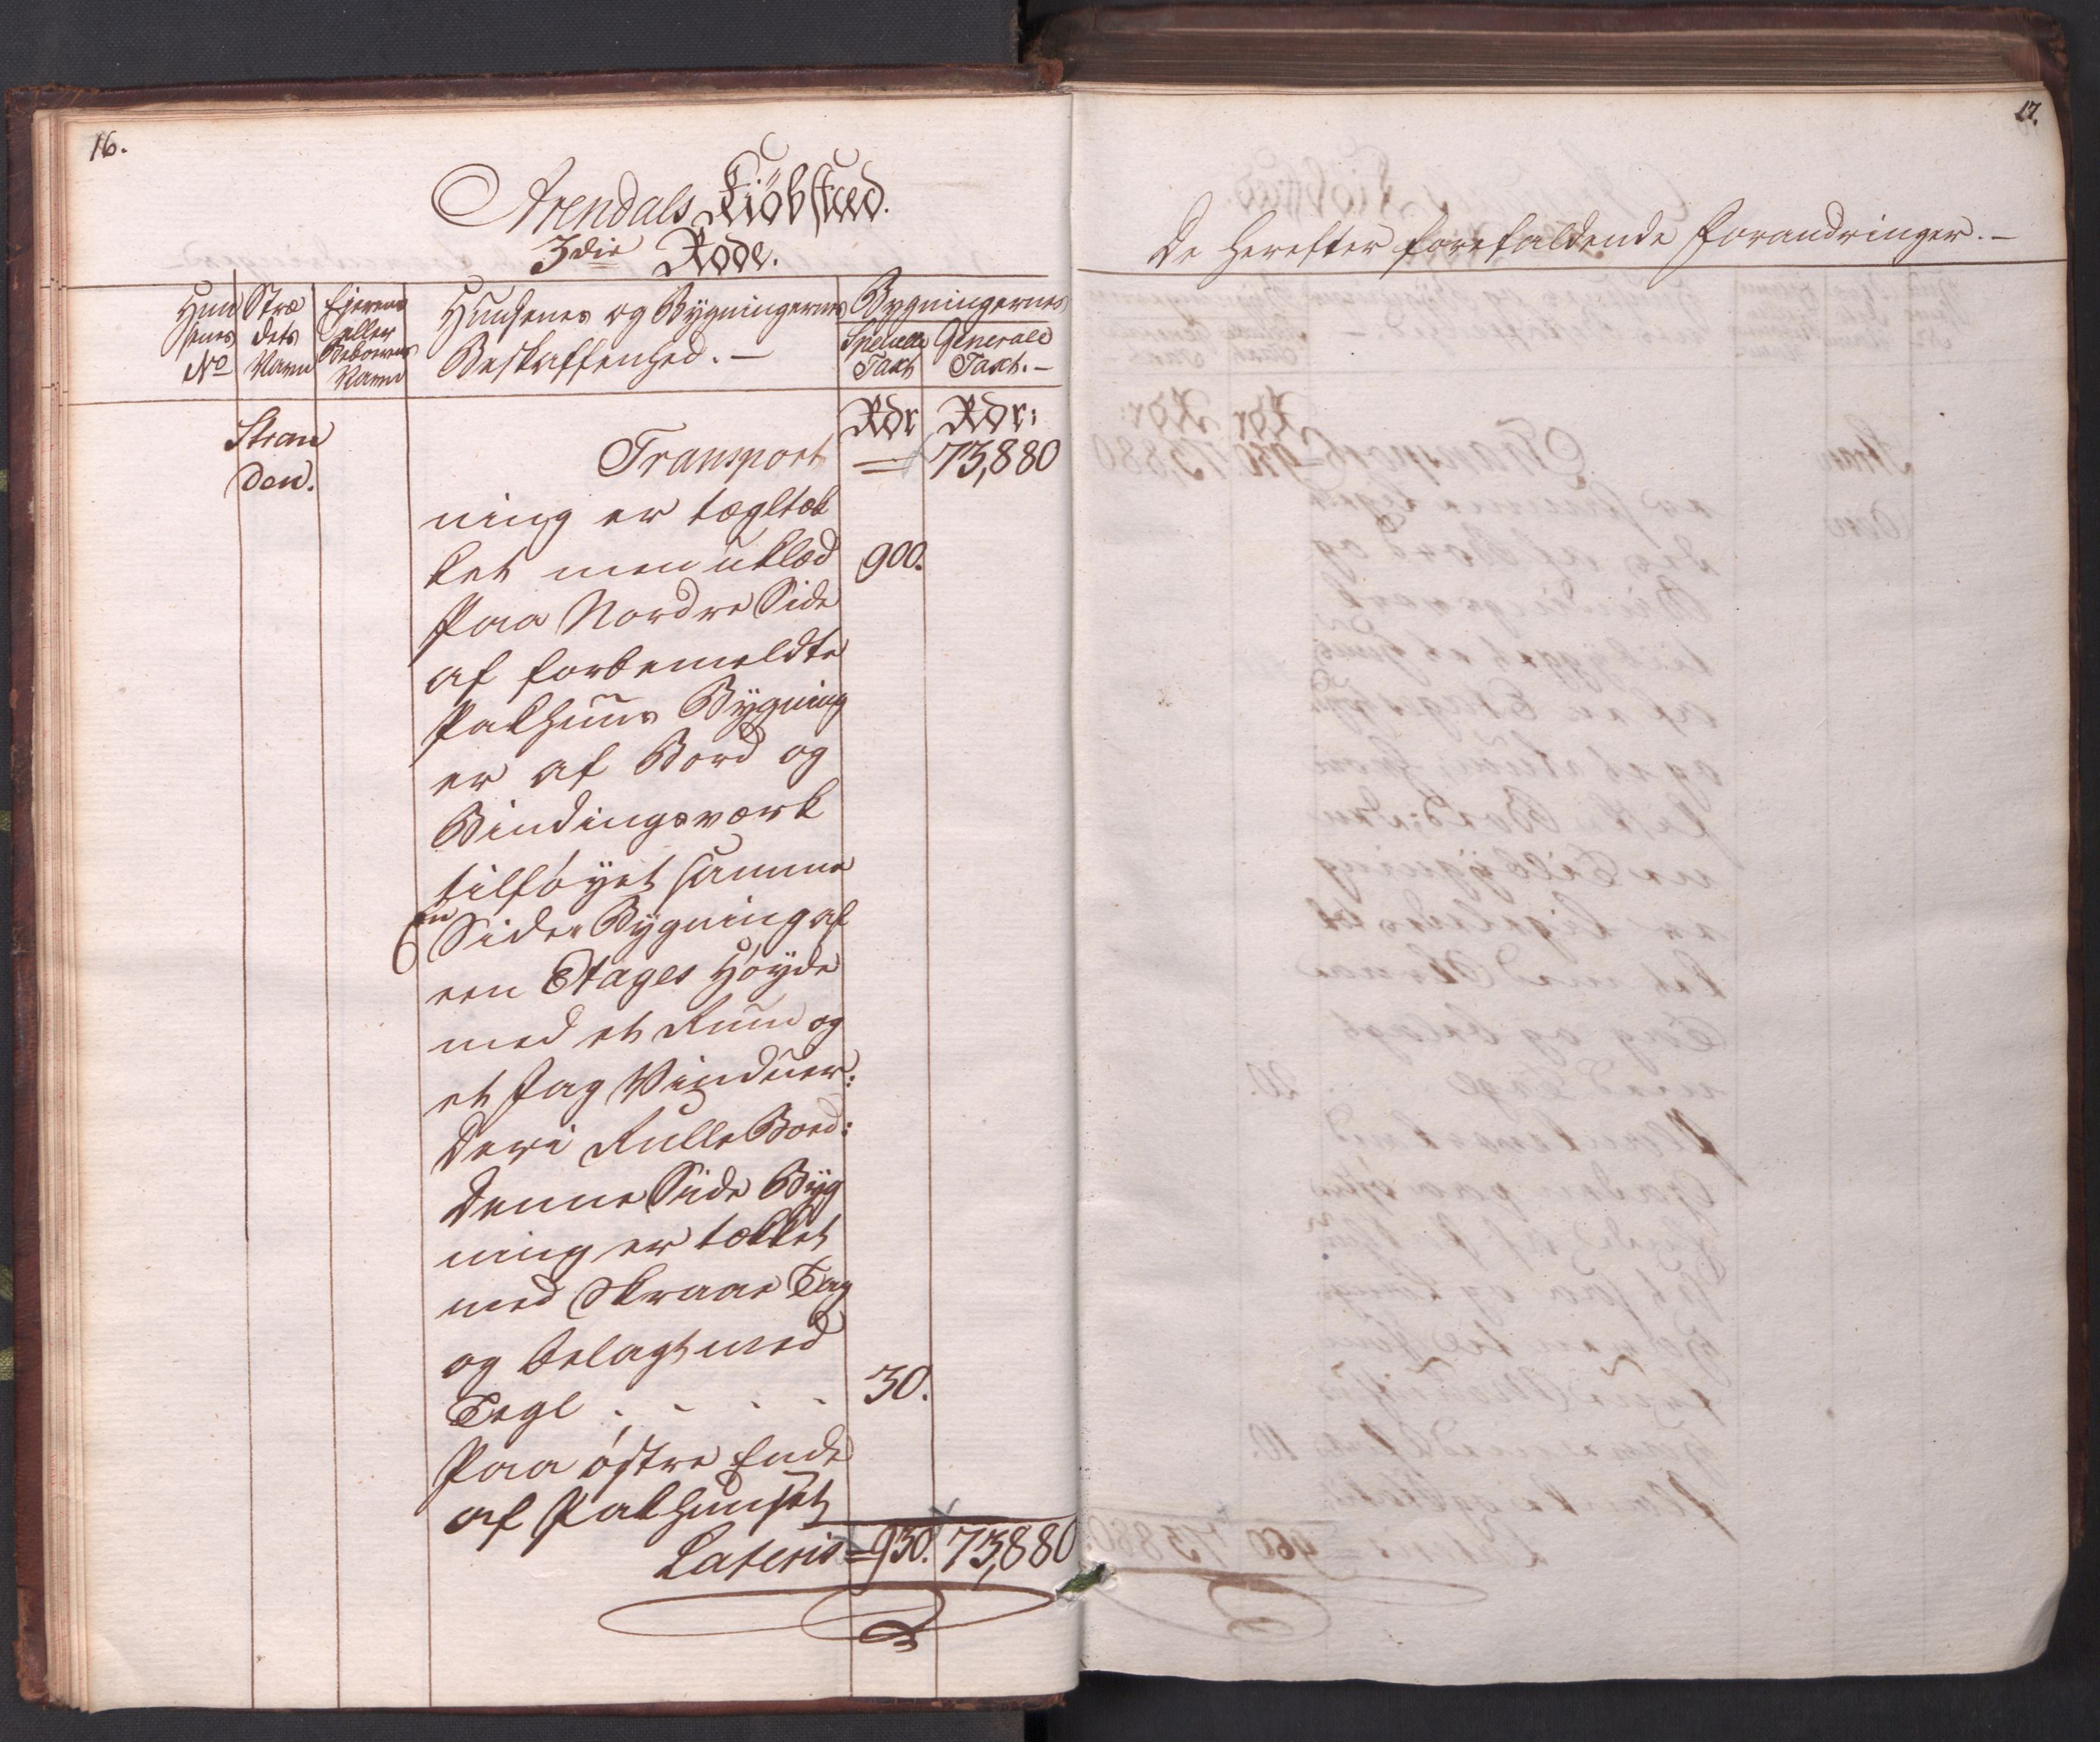 16.
Arendals Kiöbstæd.
3die Rode.
Huu
senes
No
Stræ
dets
Navn
Ejerens
eller
Beboernes
Navn
Huusenes og Bygningernes
Beskaffenhed. —
Bygningernes
Specielle
Taxt
Generale
Taxt. —
Rdr Rdr:
Stran
den.
Transport = 73,880
ning er tægltæk
ket men uklæd 900.
Paa Nordre Side
af forbemeldte
Pakhuus Bygning
er af Bord og
Bindingsværk
tilföyet samme
En
Side Bygning af
een Etages Höyde
med et Rum og
et Fag Vinduer:
deri Rulle Bord:
Denne Side Byg
ning er tækket
med Skraae Tag
og belagt med
Tegl . - . - 30.
Paa östre Ende
af Pakhuuset
Lateris = 930. 73,880
17.
De herefter forefaldende Forandringer. —